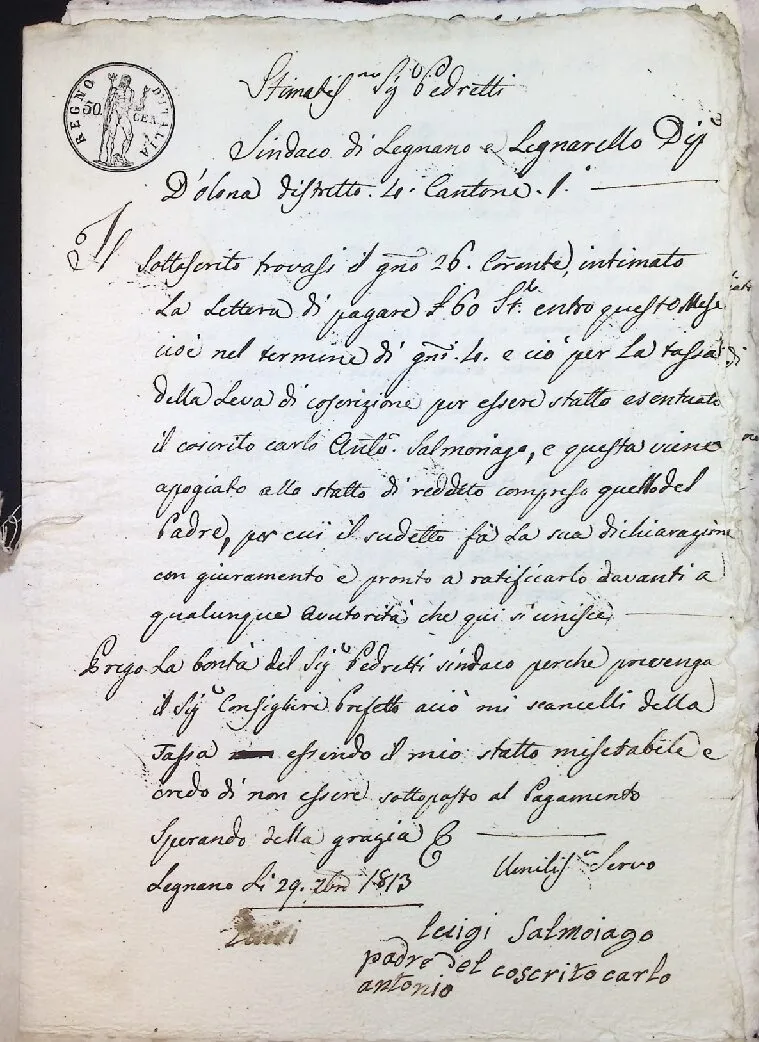 REGNO D'ITALIA
50 CEN.
Stimatis.mo Sig.r Pedretti
Sindaco di Legnano e Legnarello Dip.e
D'olona distretto. 4. Cantone. 1.°
Il Sottoscrito trovasi il gno 26. Corente, intimato
La Lettera di pagare £ 60 entro questo Mese
cioè nel termine di gni. 4. e ciò per La tassa di
della Leva di coscrizione per essere statto esentuato
il coscrito carlo Ant.o Salmoriago, e questa viene
apogiato allo statto di reddito compreso quello del
Padre, per cui il sudetto fà La sua dichiarazione
con giuramento e pronto a ratificarlo davanti a
qualunque Avutorità che qui si unisce
Prego La bontà del Sig.r Pedretti sindaco perche prevenga
il Sig.r Consigliere Prefetto acciò mi scancelli della
Tassa essendo il mio statto miserabile e
credo di non essere sottoposto al Pagamento
Sperando della grazia
Legnano Li 29. 1813
Umilis.mo Servo
Luigi Salmoiago
padre del coscrito carlo
antonio